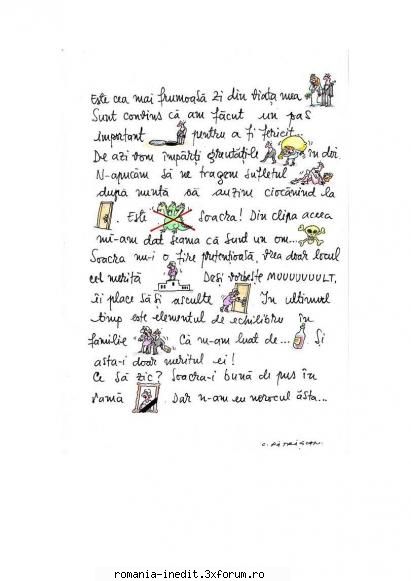 Este cea mai frumoasă zi din viața mea
Sunt convins că am făcut un pas
important pentru a fi fericit...
De azi vom împărți greutățile în doi.
N-apucăm să ne tragem sufletul
după nuntă să auzim ciocănind la
. Este Soacra! Din clipa aceea
mi-am dat seama că sunt un om...
Soacra nu-i o fire pretențioasă, vrea doar locul
cel merită Deși vorbește MUUUUUUULT,
îi place să și asculte În ultimul
timp este elementul de echilibru în
familie Că m-am luat de... Și
asta-i doar meritul ei!
Ce să zic? Soacra-i bună de pus în
ramă Dar n-am eu norocul ăsta...
C. PĂTRĂȘCAN
romania-inedit.3xforum.ro